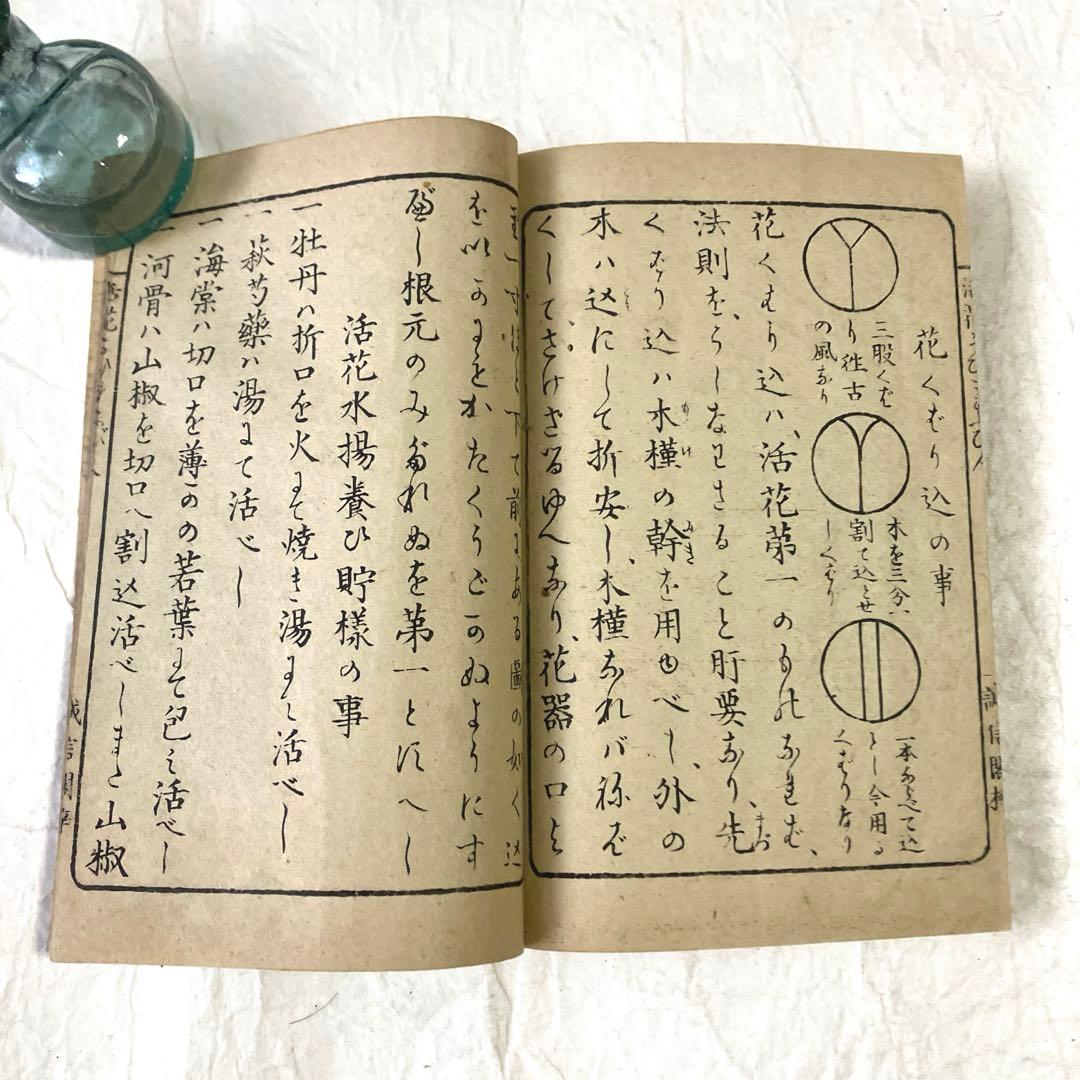 花くばり込の事
三股くば
り往古
の風なり
木を三分ハ
割て込ミせ
しくばり
一本ならべて込
とし今用る
くばりなり
花くばり込ハ、活花第一のものなれば、
法則をうしなハざること肝要なり、先
くばり込ハ木槿の幹を用ゆべし、外の
木ハ込にして折安し、木槿なれバねば
くして、さけざるゆへなり、花器の口と
一寸ほど下て前にある圖の如く込
を以
べし根元のみだれぬを第一とすへし
活花水揚養ひ貯様の事
一 牡丹ハ折口を火にて焼き湯にて活べし
一 萩芍藥ハ湯にて活べし
一 海棠ハ切口を薄かの若葉にて包ミ活べし
一 河骨ハ山椒を切口へ割込活べしまた山椒
誠信閣